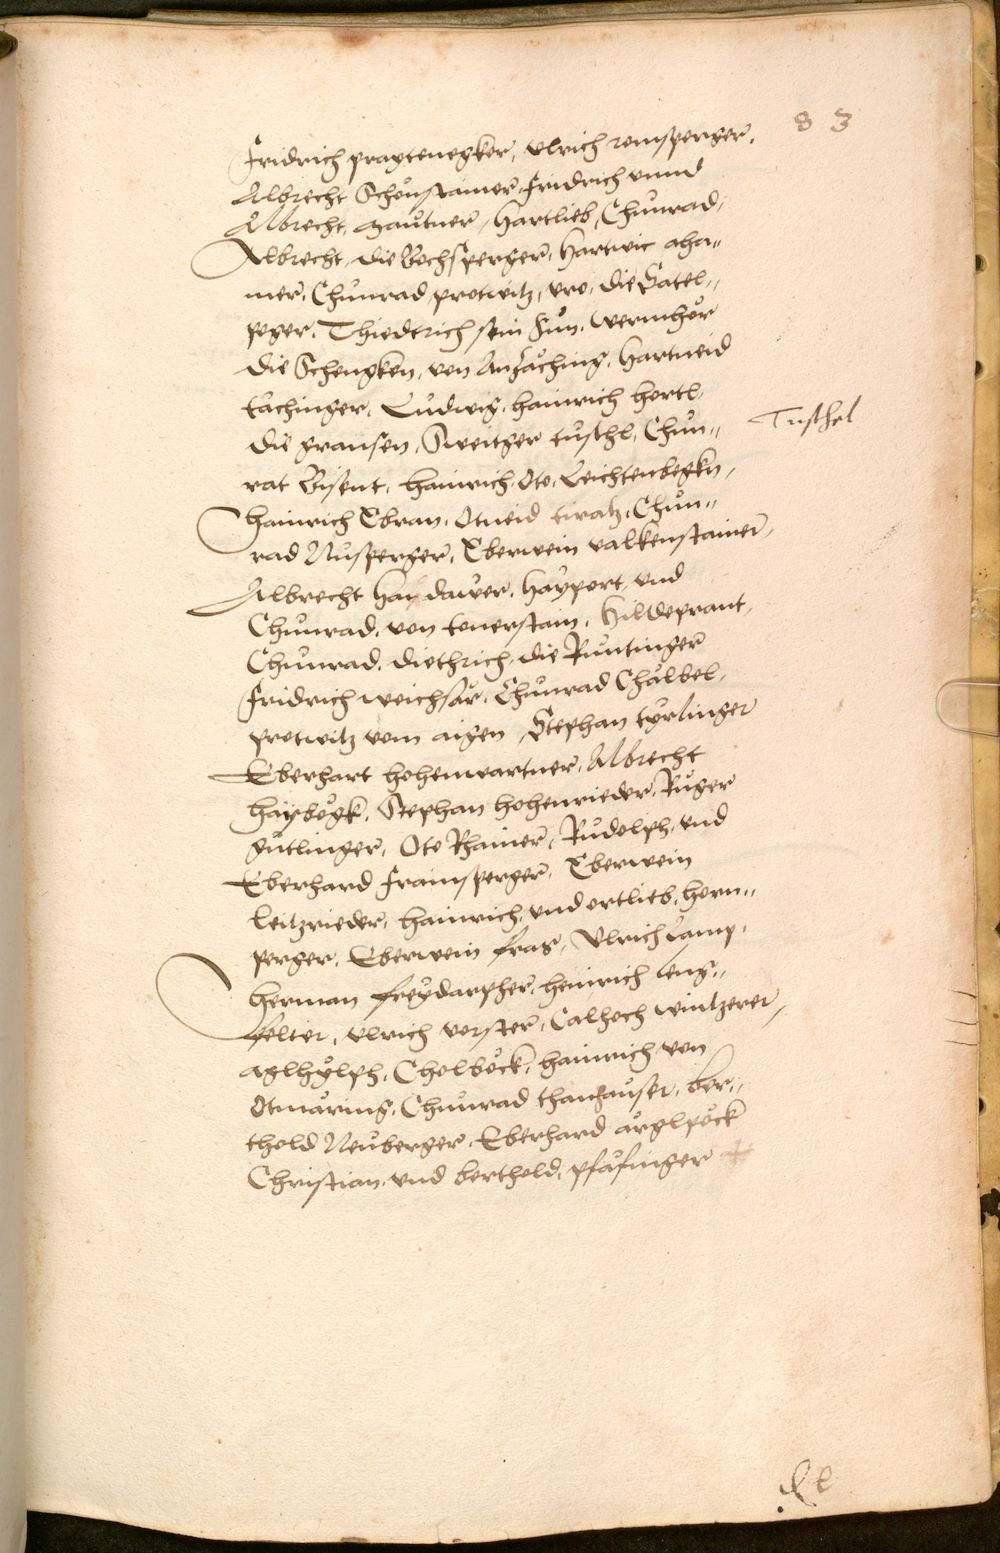 83
Fridrich praytenegker, Ulrich ramsperger,
Albrecht Schönstainer, Fridrich unnd
Albrecht, Mautner, Hartlieb, Chunrad,
Albrecht, die Bochsperger, Hartwic aha„
mer, Chunrad, protwitz, uro, die Satel„
poger, Thiedrich sein Sun, Wernhör
die Schengken, von Anzäching, Hartneid
tächinger, Ludwig, hainrich hertl,
die gransen, Sweitger tuschl, Chun„
Tuschel
rat Bisent, hainrich Oto, Leichtenbegkn,
hainrich Ebran, Otneid tiratz, Chun„
rad Nusperger, Eberwein valkenstainer,
Albrecht hai dawer, hayport, und
Chunrad, von tonerstain, Hildeprant,
Chunrad, diethrich, die Runtinger
Fridrich weichsär, Chunrad Chälbel,
protwitz vom aigen, Stephan tyrlinger
Eberhart hohenwartner, Albrecht
haybögk, Stephan hohenrieder, Ruger
gutlinger, Oto Rhainer, Rudolph, und
Eberhard framsperger, Eberwein
leitzrieder, hainrich, und ortlieb, horn„
perger, Eberwein frag, Ulrich Lamp,
Herman freydarpher, heinrich leng„
felter, Ulrich vorster, Calhoch wintzerer,
aglhylph, Cholböck, hainrich, von
Otmäring, Chunrad thanhauser, ber„
thold Neuberger, Eberhard ärglpöck
Christian, und berthold, pfäfinger